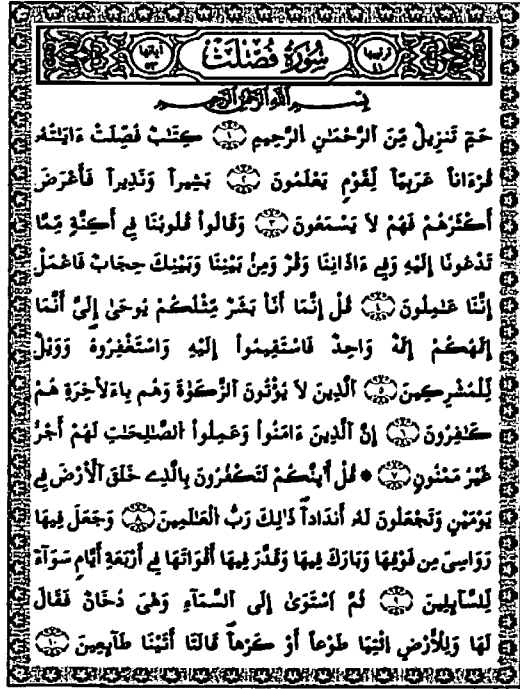 ترتيبها ٤١ سُورَةُ فُصِّلَتْ آياتها ٥٣
بِسْمِ اللَّهِ الرَّحْمَٰنِ الرَّحِيمِ
حَمٓ تَنزِيلٌ مِّنَ اَ۬لرَّحْمَٰنِ اِ۬لرَّحِيمِ ١ كِتَٰبٌ فُصِّلَتْ ءَايَٰتُهُۥ
قُرْءَاناً عَرَبِيّاً لِّقَوْمٍ يَعْلَمُونَ ٢ بَشِيراً وَنَذِيراً فَأَعْرَضَ
أَكْثَرُهُمْ فَهُمْ لَا يَسْمَعُونَ ٣ وَقَالُواْ قُلُوبُنَا فِے أَكِنَّةٍ مِّمَّا
تَدْعُونَا إِلَيْهِ وَفِے ءَاذَانِنَا وَقْرٌ وَمِنۢ بَيْنِنَا وَبَيْنِكَ حِجَابٌ فَاعْمَلْ
إِنَّنَا عَٰمِلُونَ ٤ قُلْ إِنَّمَا أَنَا۠ بَشَرٌ مِّثْلُكُمْ يُوحَىٰ إِلَيَّ أَنَّمَا
إِلَٰهُكُمْ إِلَٰهٌ وَاحِدٌ فَاسْتَقِيمُواْ إِلَيْهِ وَاسْتَغْفِرُوهُ وَوَيْلٌ
لِّلْمُشْرِكِينَ ٥ اَ۬لذِينَ لَا يُؤْتُونَ اَ۬لزَّكَوٰةَ وَهُم بِالَاخِرَةِ هُمْ
كَٰفِرُونَ ٦ إِنَّ اَ۬لذِينَ ءَامَنُواْ وَعَمِلُواْ اُ۬لصَّٰلِحَٰتِ لَهُمْ أَجْرٌ
غَيْرُ مَمْنُونٍ ٧ * قُلْ أَئِنَّكُمْ لَتَكْفُرُونَ بِالذِے خَلَقَ اَ۬لْأَرْضَ فِے
يَوْمَيْنِ وَتَجْعَلُونَ لَهُۥ أَندَاداً ذَٰلِكَ رَبُّ اُ۬لْعَٰلَمِينَ ٨ وَجَعَلَ فِيهَا
رَوَٰسِيَ مِن فَوْقِهَا وَبَٰرَكَ فِيهَا وَقَدَّرَ فِيهَا أَقْوَٰتَهَا فِے أَرْبَعَةِ أَيَّامٍ سَوَآءً
لِّلسَّآئِلِينَ ٩ ثُمَّ اَ۪سْتَوَىٰ إِلَى اَ۬لسَّمَآءِ وَهْيَ دُخَانٌ فَقَالَ
لَهَا وَلِلْأَرْضِ اِ۪ئْتِيَا طَوْعاً أَوْ كَرْهاً قَالَتَا أَتَيْنَا طَآئِعِينَ ١٠